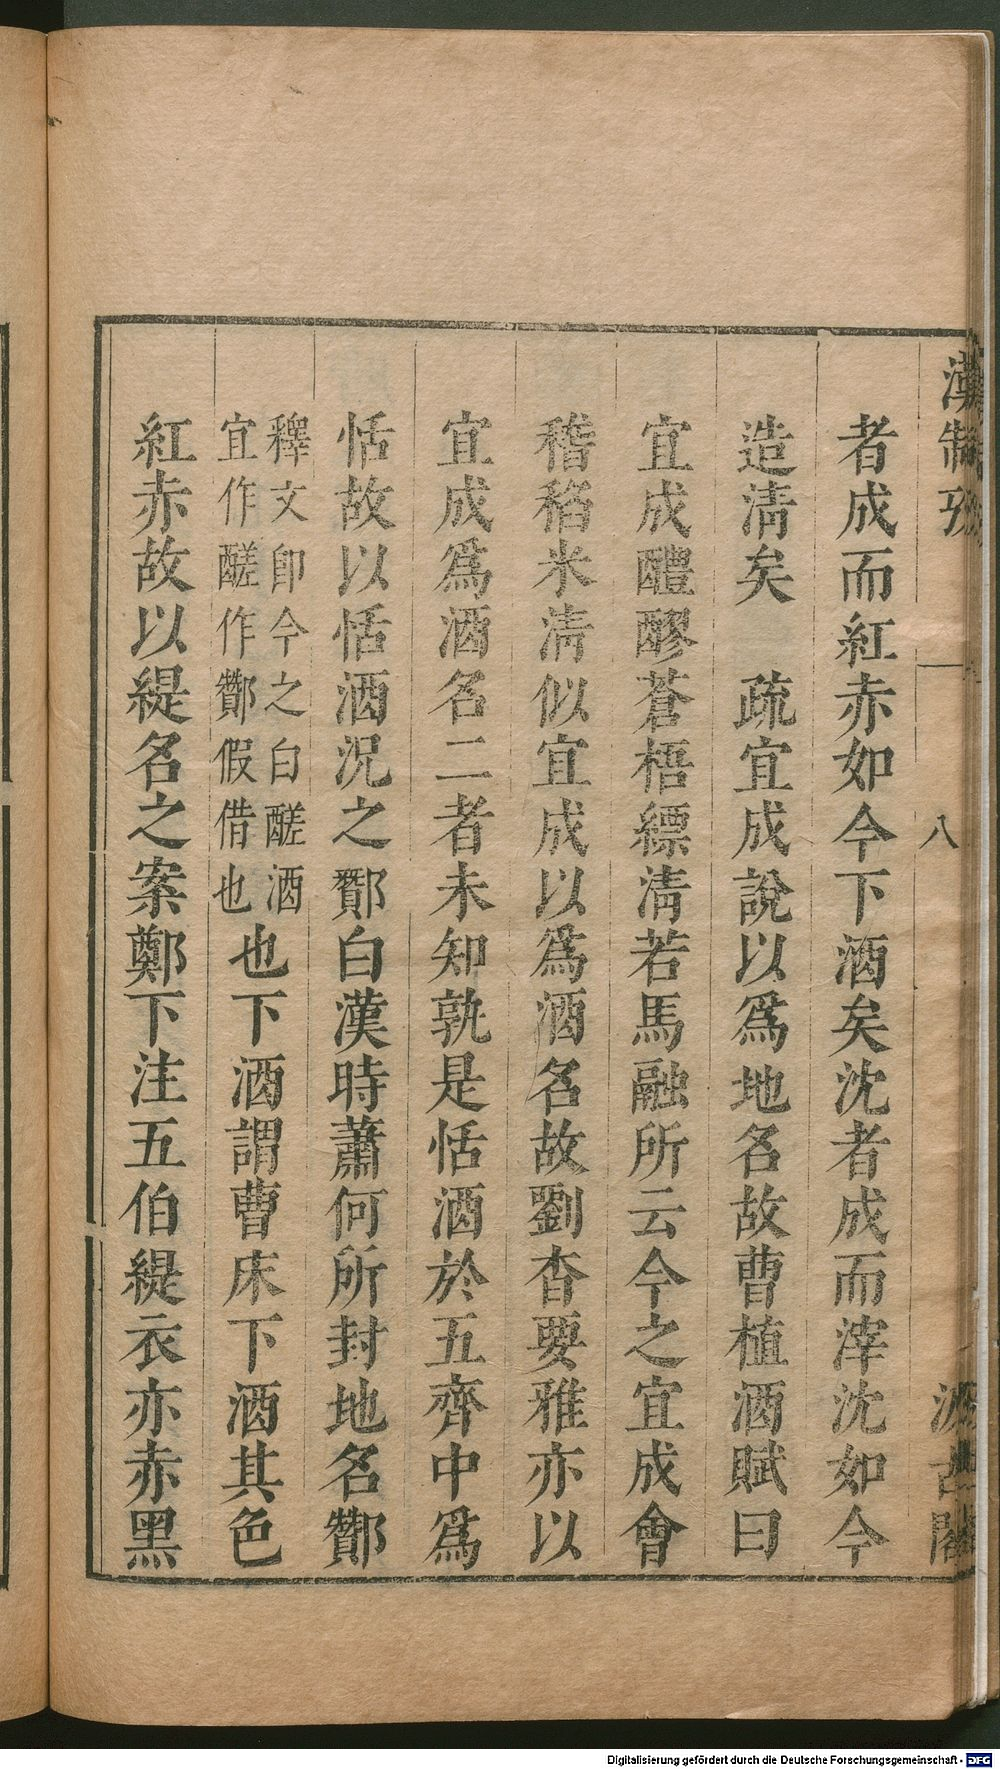 漢制攷
八
汲古閣
者成而紅赤如今下酒矣沈者成而滓沈如今
造淸矣　疏宜成說以爲地名故曹植酒賦曰
宜成醴醪蒼梧縹淸若馬融所云今之宜成會
稽稻米淸似宜成以爲酒名故劉杳要雅亦以
宜成爲酒名二者未知孰是恬酒於五齊中爲
恬故以恬酒况之酇白漢時蕭何所封地名酇
釋文卽今之白醝酒
宜作醝作酇假借也
也下酒謂曹床下酒其色
紅赤故以緹名之案鄭下注五伯緹衣亦赤黑
Digitalisierung gefördert durch die Deutsche Forschungsgemeinschaft - DFG